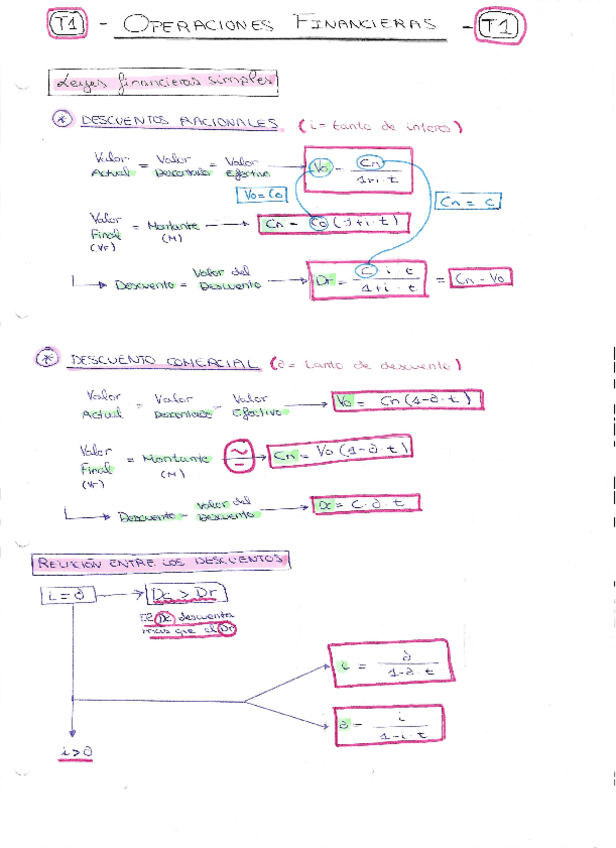 T1 - OPERACIONES FINANCIERAS - T1
Leyes financieras simples
* DESCUENTOS RACIONALES (i = tanto de interes)
Valor Actual = Valor Descontado = Valor Efectivo → Vo = Cn / 1+i·t
Vo = Co
Cn = C
Valor Final (Vf) = Montante (M) → Cn = Co (1+i·t)
→ Descuento = Valor del Descuento → Dr = C·i·t / 1+i·t = Cn - Vo
* DESCUENTO COMERCIAL (∂ = tanto de descuento)
Valor Actual = Valor Descontado = Valor Efectivo → Vo = Cn (1-∂·t)
Valor Final (Vf) = Montante (M) → Cn = Vo (1-∂·t)
→ Descuento = Valor del Descuento → Dc = C·∂·t
RELACIÓN ENTRE LOS DESCUENTOS
i = ∂ → Dc > Dr
El Dc descuenta
mas que el Dr
i = ∂ / 1-∂·t
∂ = i / 1-i·t
i > ∂